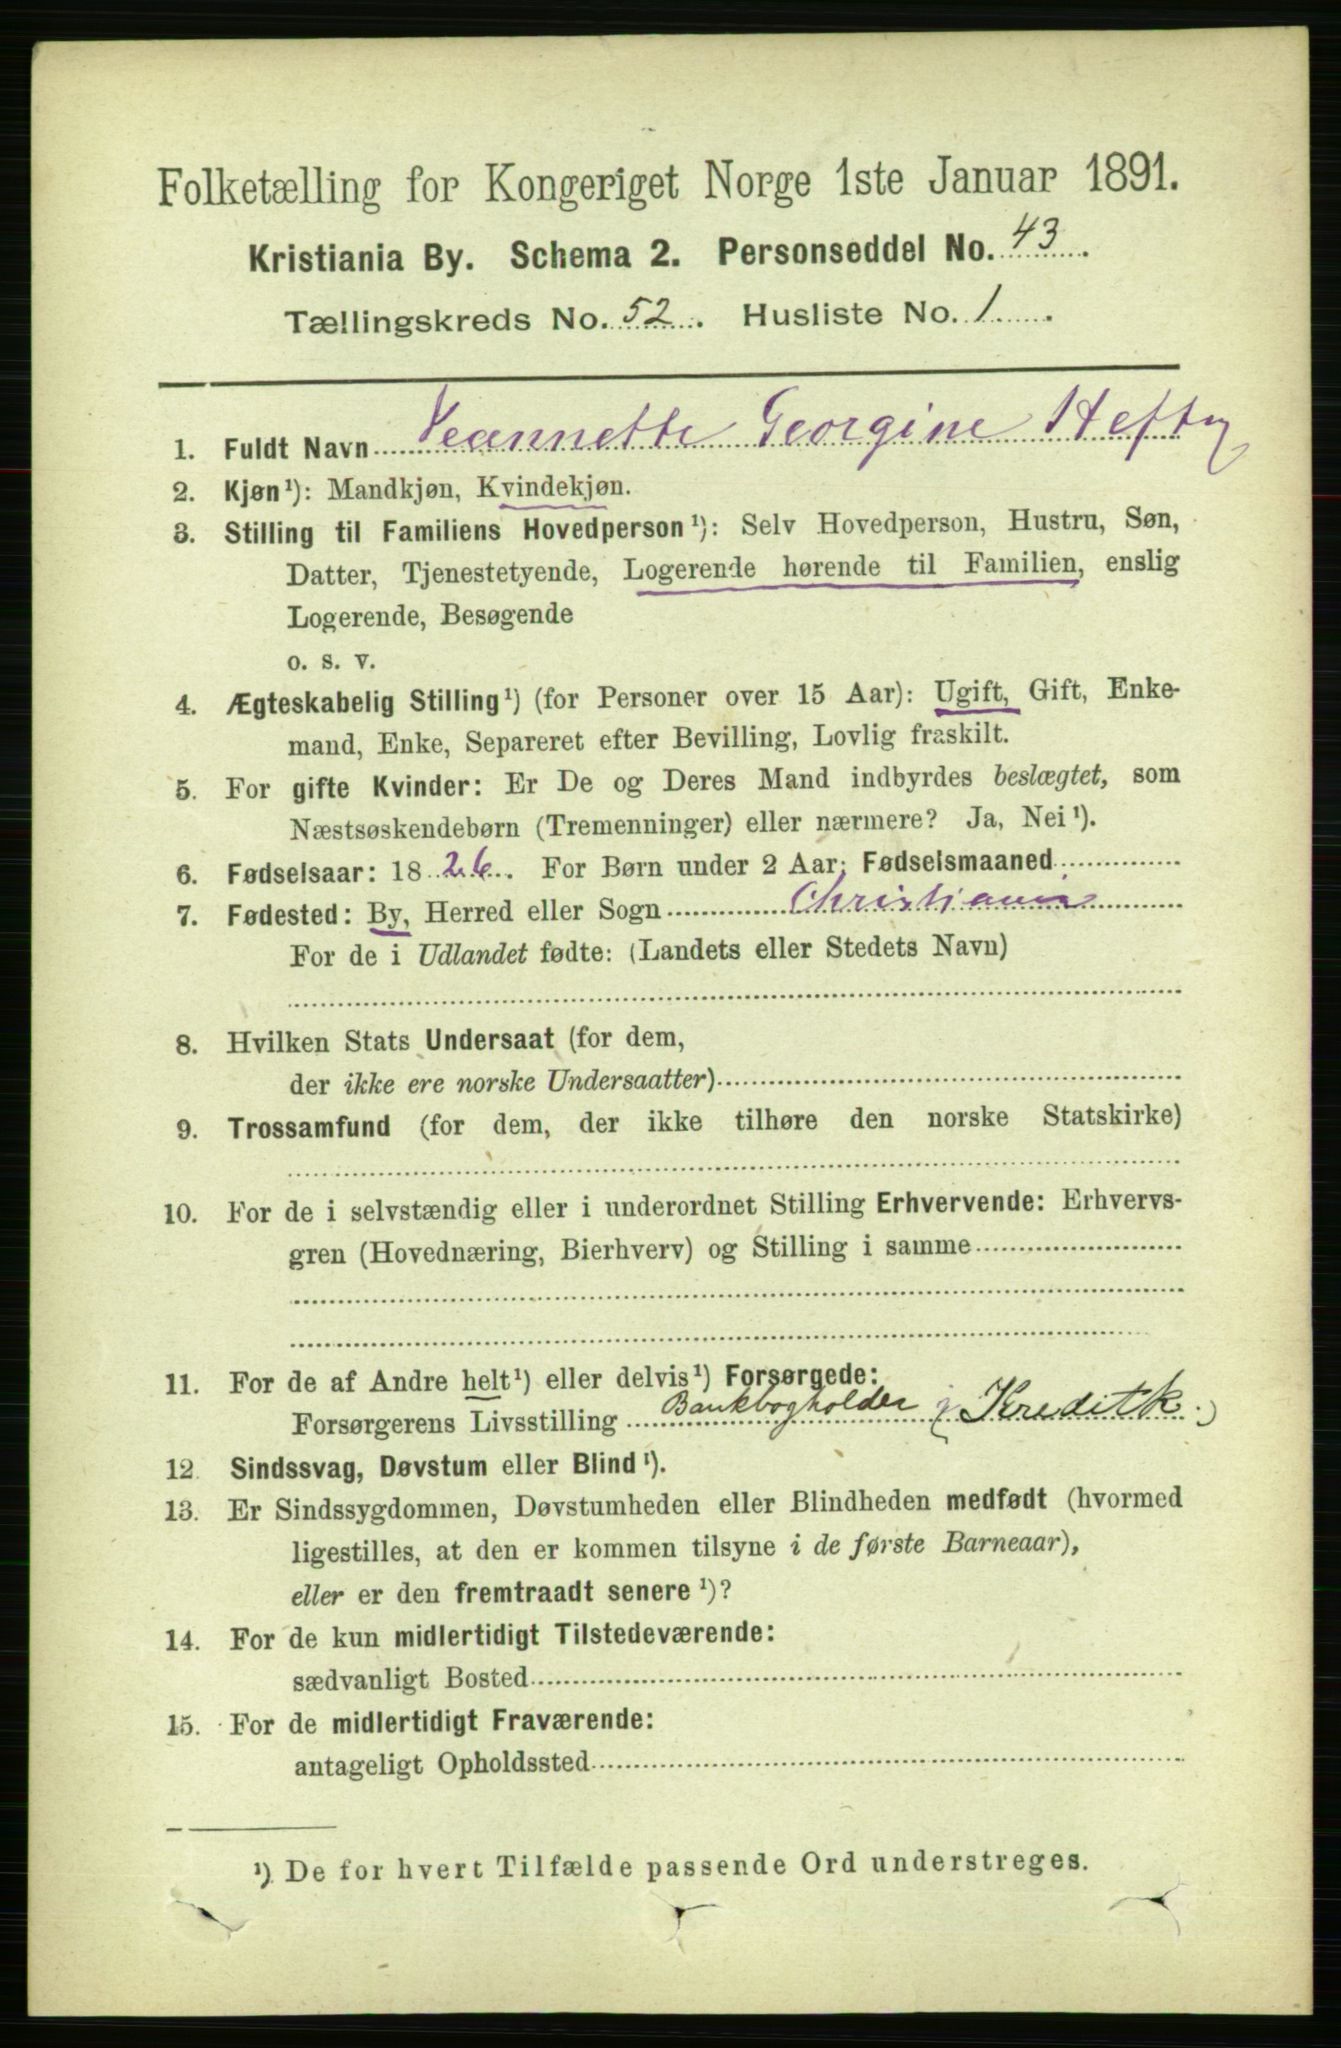 Folketælling for Kongeriget Norge 1ste Januar 1891.
Kristiania By. Schema 2. Personseddel No. 43.
Tællingskreds No. 52. Husliste No. 1.
1. Fuldt Navn Jeannette Georgine Hefty
2. Kjøn¹): Mandkjøn, Kvindekjøn.
3. Stilling til Familiens Hovedperson¹): Selv Hovedperson, Hustru, Søn,
Datter, Tjenestetyende, Logerende hørende til Familien, enslig
Logerende, Besøgende
o. s. v.
4. Ægteskabelig Stilling¹) (for Personer over 15 Aar): Ugift, Gift, Enke-
mand, Enke, Separeret efter Bevilling, Lovlig fraskilt.
5. For gifte Kvinder: Er De og Deres Mand indbyrdes beslægtet, som
Næstsøskendebørn (Tremenninger) eller nærmere? Ja, Nei¹).
6. Fødselsaar: 1826. For Børn under 2 Aar: Fødselsmaaned
7. Fødested: By, Herred eller Sogn Christiania
For de i Udlandet fødte: (Landets eller Stedets Navn)
8. Hvilken Stats Undersaat (for dem,
der ikke ere norske Undersaatter)
9. Trossamfund (for dem, der ikke tilhøre den norske Statskirke)
10. For de i selvstændig eller i underordnet Stilling Erhvervende: Erhvervs-
gren (Hovednæring, Bierhverv) og Stilling i samme
11. For de af Andre helt¹) eller delvis¹) Forsørgede:
Forsørgerens Livsstilling Bankbogholder (Kreditk.)
12. Sindssvag, Døvstum eller Blind¹).
13. Er Sindssygdommen, Døvstumheden eller Blindheden medfødt (hvormed
ligestilles, at den er kommen tilsyne i de første Barneaar),
eller er den fremtraadt senere¹)?
14. For de kun midlertidigt Tilstedeværende:
sædvanligt Bosted
15. For de midlertidigt Fraværende:
antageligt Opholdssted
¹) De for hvert Tilfælde passende Ord understreges.